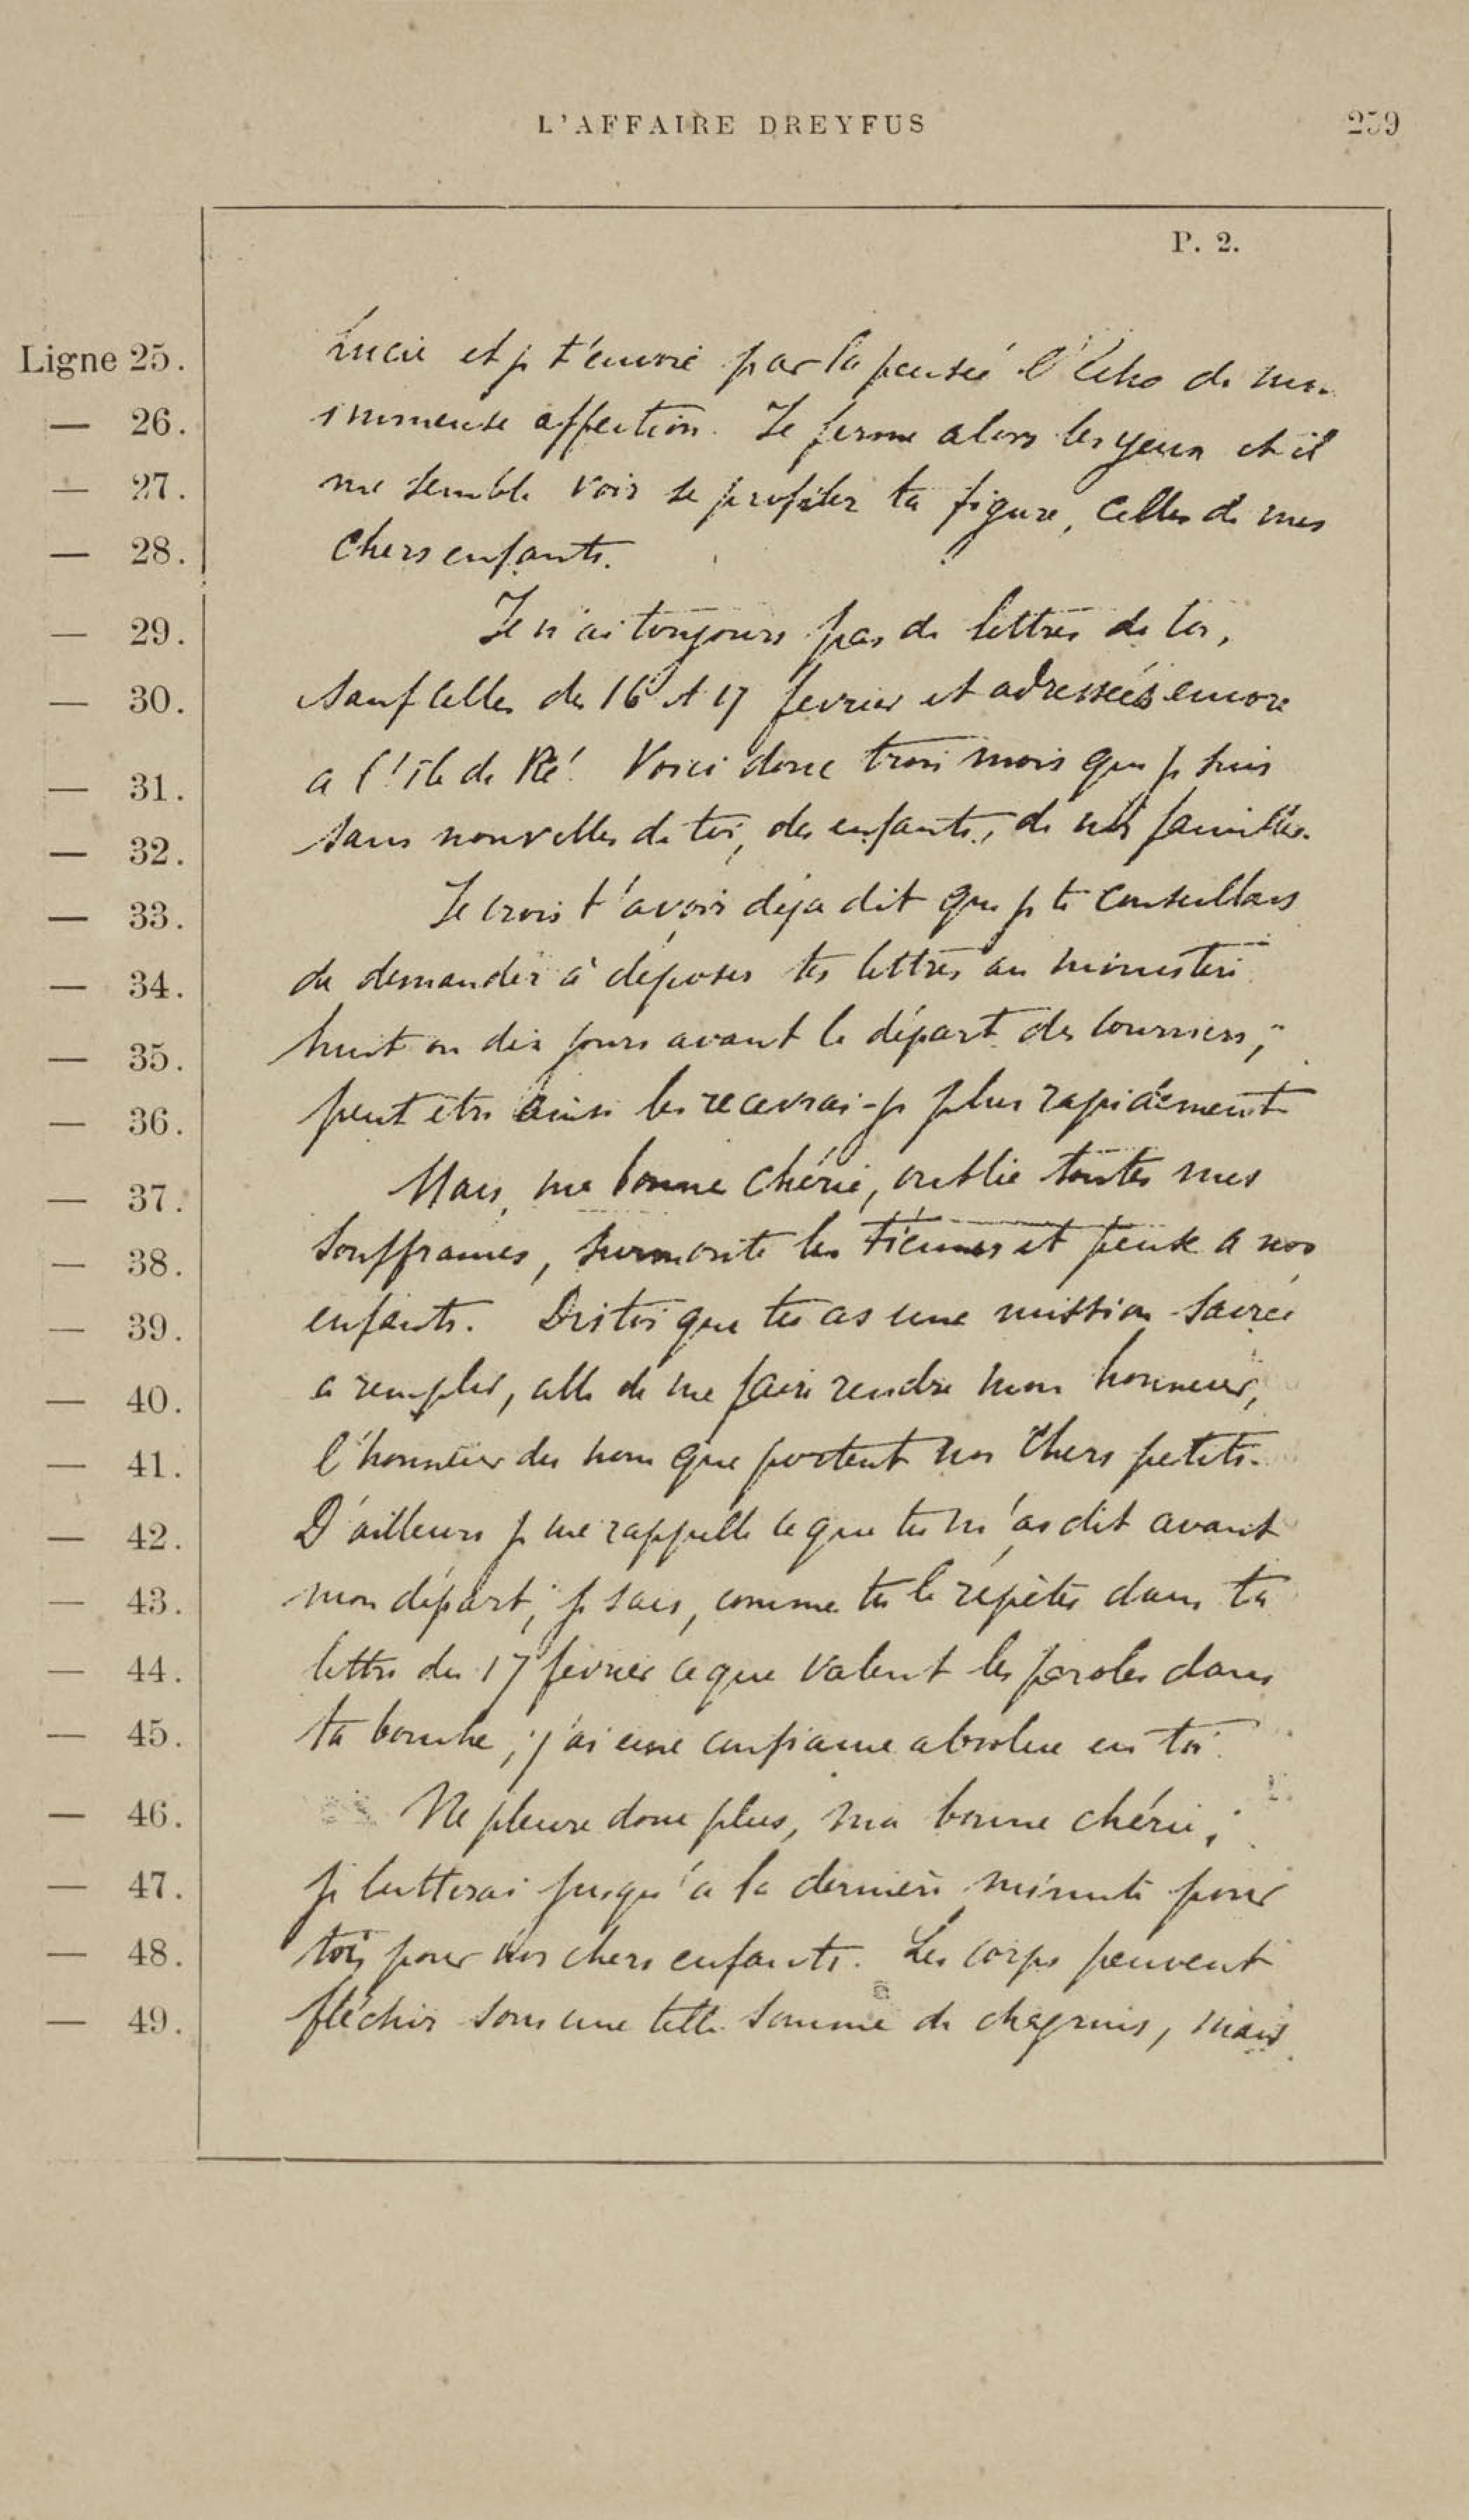 L'AFFAIRE DREYFUS 259
P. 2.
Ligne 25. Lucie et je t'envoie par la pensée l'écho de mon
— 26. immense affection. Je ferme alors les yeux et il
— 27. me semble voir se profiler ta figure, celles de mes
— 28. chers enfants.
— 29. Je n'ai toujours pas de lettres de toi,
— 30. sauf celles des 16 et 17 février et adressées encore
— 31. a l'île de Ré. Voici donc trois mois que je suis
— 32. sans nouvelles de toi, des enfants, de nos familles.
— 33. Je crois t'avoir déja dit que je te conseillais
— 34. de demander à déposer tes lettres au ministère
— 35. huit ou dix jours avant le départ des courriers;
— 36. peut être ainsi les recevrai-je plus rapidement
— 37. Mais, ma bonne chérie, oublie toutes mes
— 38. souffrances, surmonte les tiennes et pense a nos
— 39. enfants. Dis toi que tu as une mission sacrée
— 40. a remplir, celle de me faire rendre mon honneur,
— 41. l'honneur du nom que portent nos chers petits.
— 42. D'ailleurs je me rappelle ce que tu m'as dit avant
— 43. mon départ; je sais, comme tu le répètes dans ta
— 44. lettre du 17 février ce que valent les paroles dans
— 45. ta bouche; j'ai une confiance absolue en toi.
— 46. Ne pleure donc plus, ma bonne chérie;
— 47. je lutterai jusqu'a la dernière minute pour
— 48. toi, pour nos chers enfants. Les corps peuvent
— 49. fléchir sous une telle somme de chagrins, mais